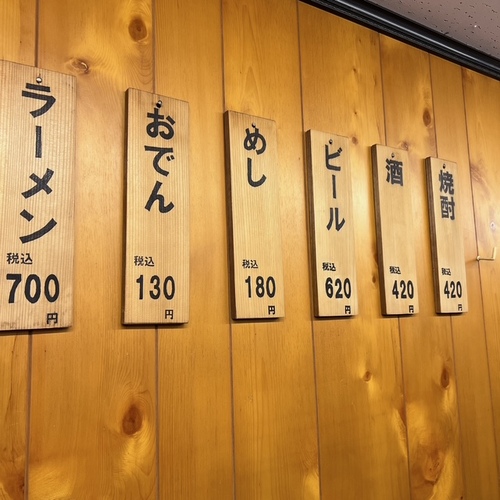 ラーメン
税込
700
円
おでん
税込
130
円
めし
税込
180
円
ビール
税込
620
円
酒
税込
420
円
焼酎
税込
420
円